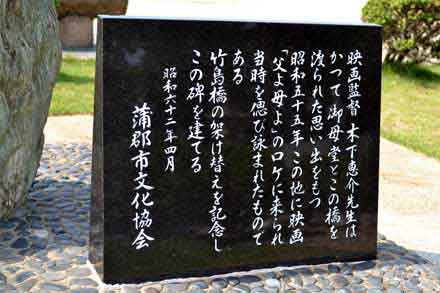 映画監督 木下恵介先生は
かつて御母堂とこの橋を
渡られた思い出をもつ
昭和五十五年この地に映画
「父よ母よ」のロケに来られ
当時を偲び詠まれたもので
ある
竹島橋の架け替えを記念し
この碑を建てる
昭和六十二年四月
蒲郡市文化協会